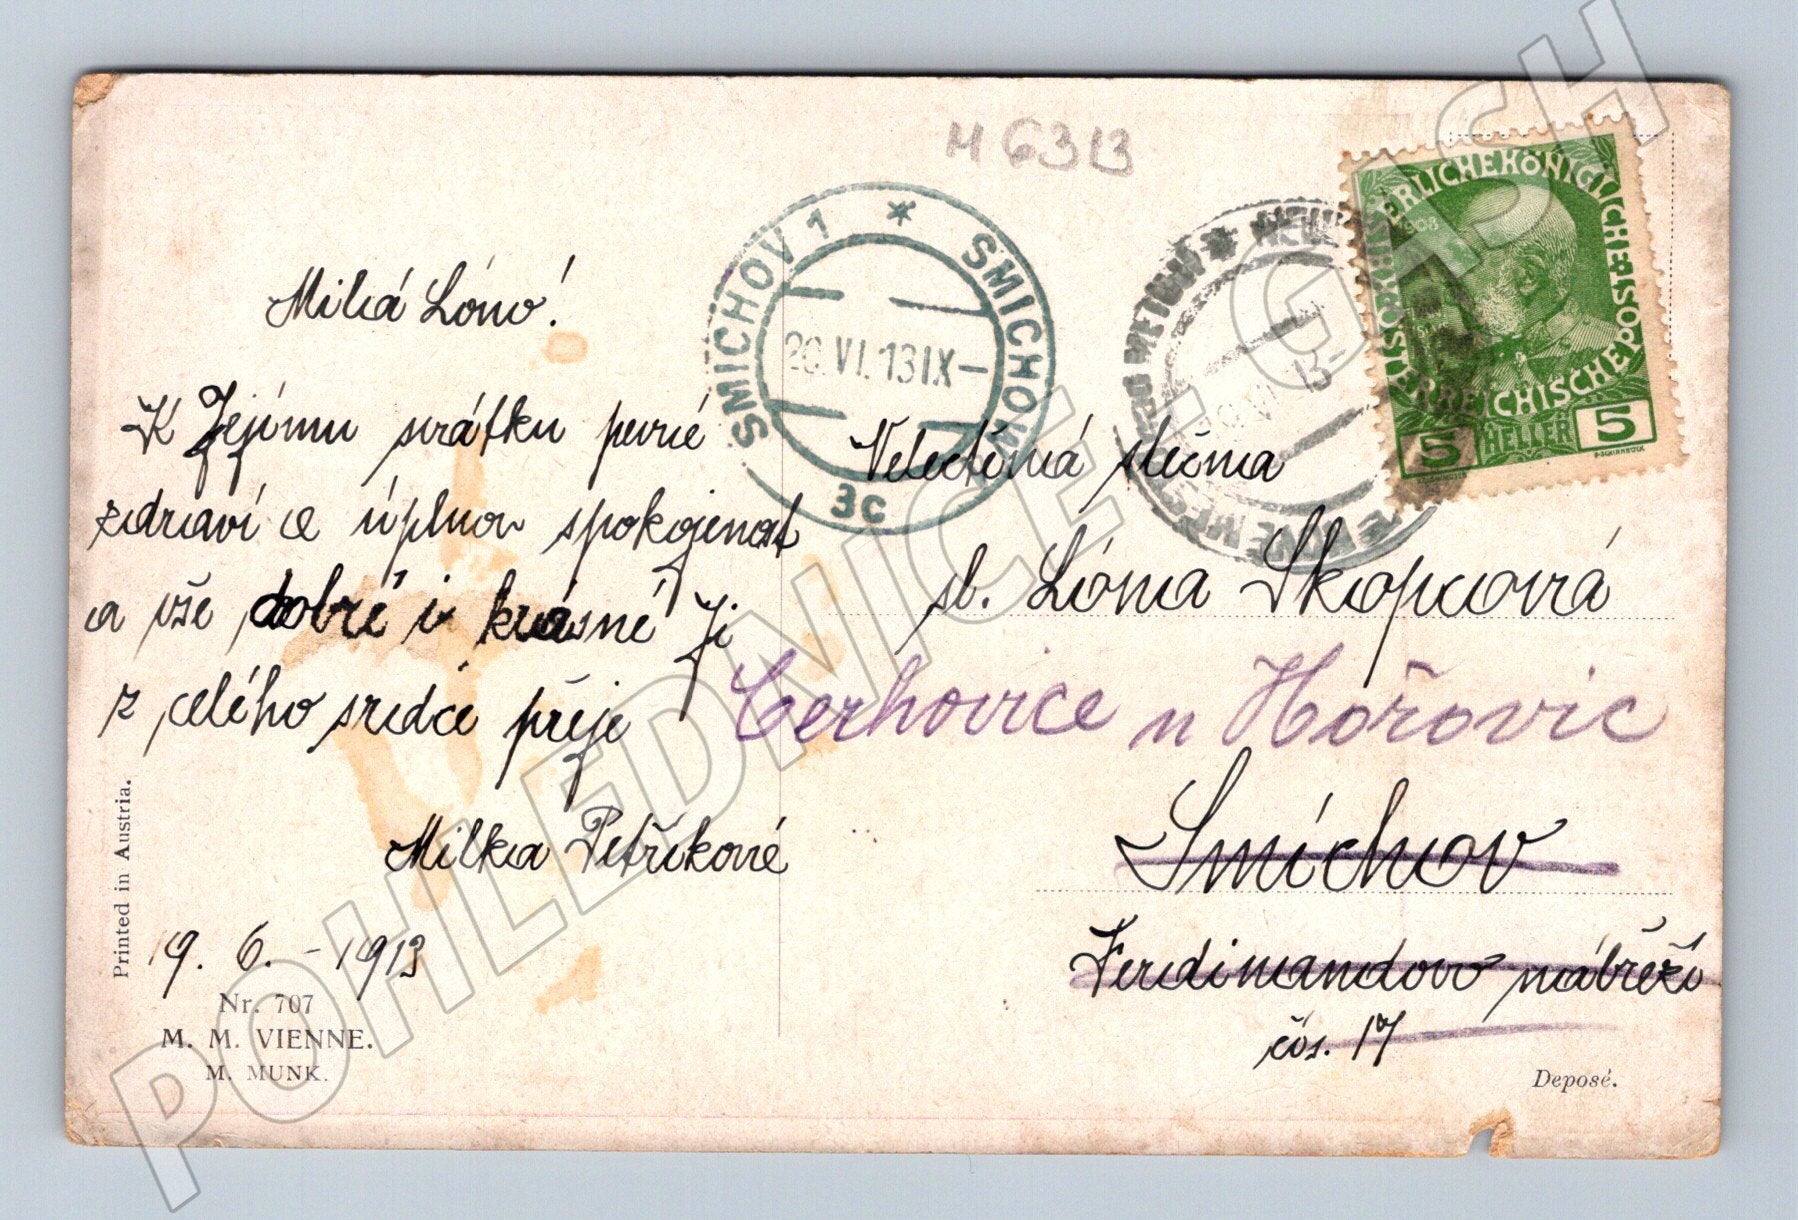 M 6313
SMICHOV 1 * SMICHOV
20.VI.13 IX-
3c
NEU
VE METUJÍ *
13
ÖSTERREICHISCHE POST
KAISERLICHE KÖNIGLICHE
1908
5 HELLER 5
Milá Lóno!
K Jejímu svátku pevné
zdraví a úplnou spokojenost
a vše dobré i krásné Ji
z celého srdce přeje
Milka Petříková
19. 6. - 1913
Velectěná slečna
sl. Lóna Skopcová
Cerhovice u Hořovic
Smíchov
Ferdinandovo nábřeží
čís. 17
Printed in Austria.
Nr. 707
M. M. VIENNE.
M. MUNK.
Deposé.
POHLEDNICE - GASH